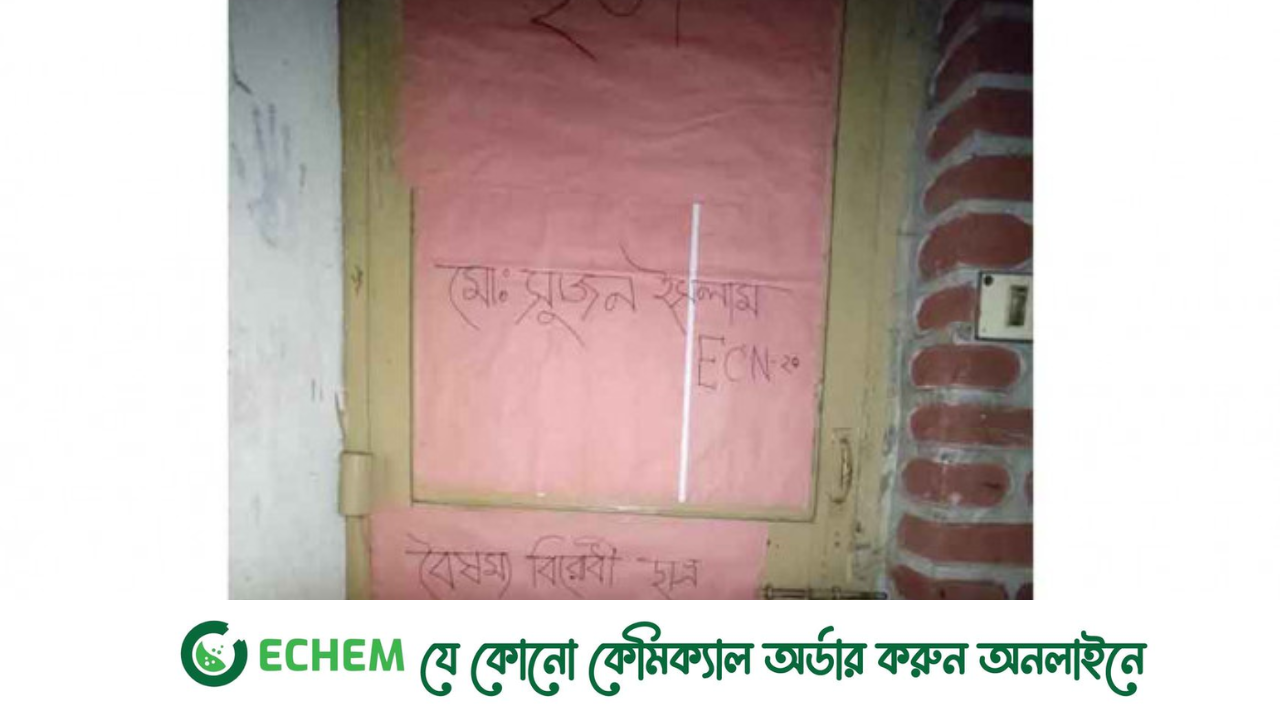 মোঃ সুজন ইসলাম
ECN-২০
বৈষম্য বিরোধী ছাত্র
ECHEM যে কোনো কেমিক্যাল অর্ডার করুন অনলাইনে